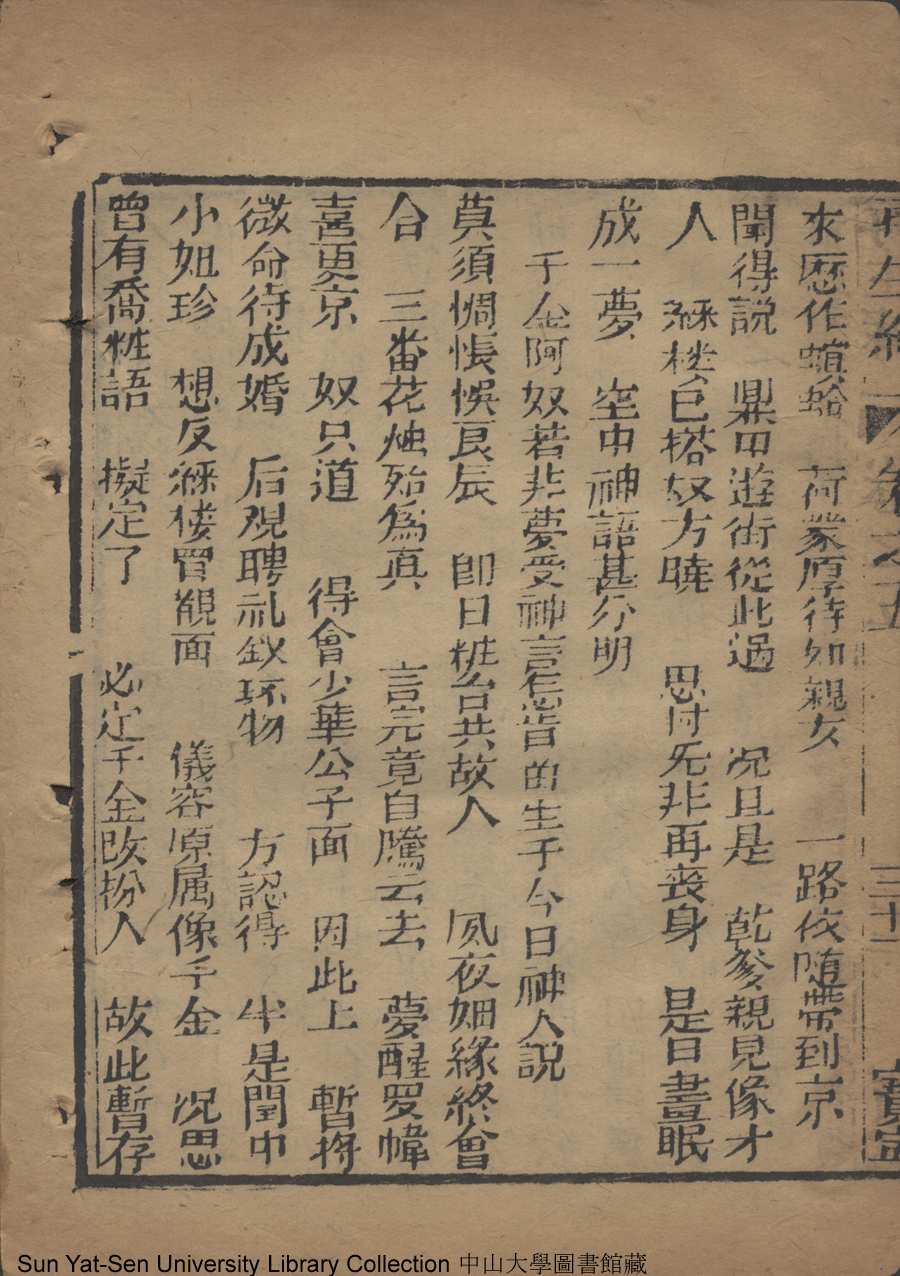 再生緣 卷之五 三十一 寳
來歷作螟蛉 荷蒙厚待如親女 一路依隨帶到京
聞得説 鼎甲遊街從此過 况且是 乾爹親見像才
人 綵楼已搭奴方曉 思忖旡非再丧身 是日晝眠
成一夢 空中神語甚分明
千金阿奴若非夢受神言怎肯的生于今日神人説
莫須惆悵悞良辰 即日粧台共故人 夙夜姻緣終會
合 三番花烛始為真 言完竟自騰云去 夢醒罗幃
喜更京 奴只道 得會少華公子面 因此上 暫將
微命待成婚 后覌聘礼釵环物 方認得 半是閨中
小姐珍 想反綵楼曾覩面 儀容原属像千金 况思
曾有喬粧語 擬定了 必定千金改扮人 故此暫存
Sun Yat-Sen University Library Collection 中山大學圖書館藏